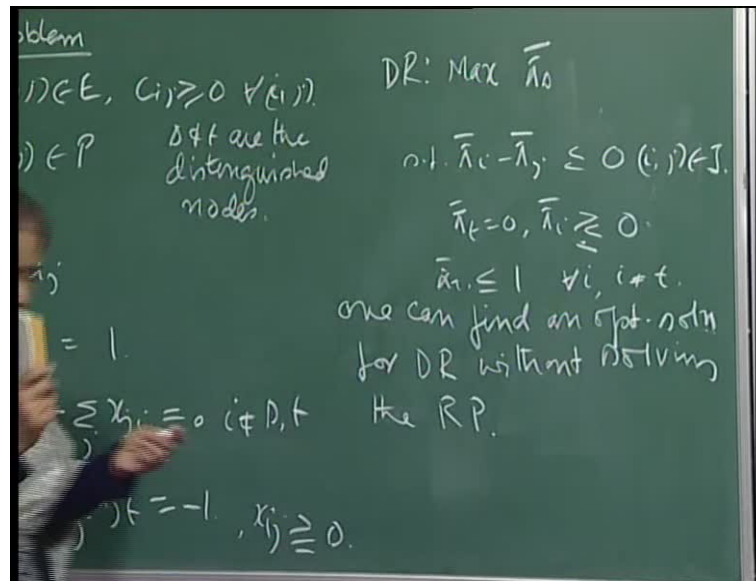 oblem
j) ∈ E, Cij ≥ 0 ∀(i,j).
j) ∈ P
s & t are the
distinguished
nodes.
ij
= 1.
- Σ xji = 0 i ≠ s, t
j
jt = -1, xij ≥ 0.
DR: Max π̄s
s.t. π̄i - π̄j ≤ 0 (i,j) ∈ J.
π̄t = 0, π̄i ≷ 0.
π̄i ≤ 1 ∀i, i ≠ t.
one can find an opt. soln
for DR without solving
the RP.